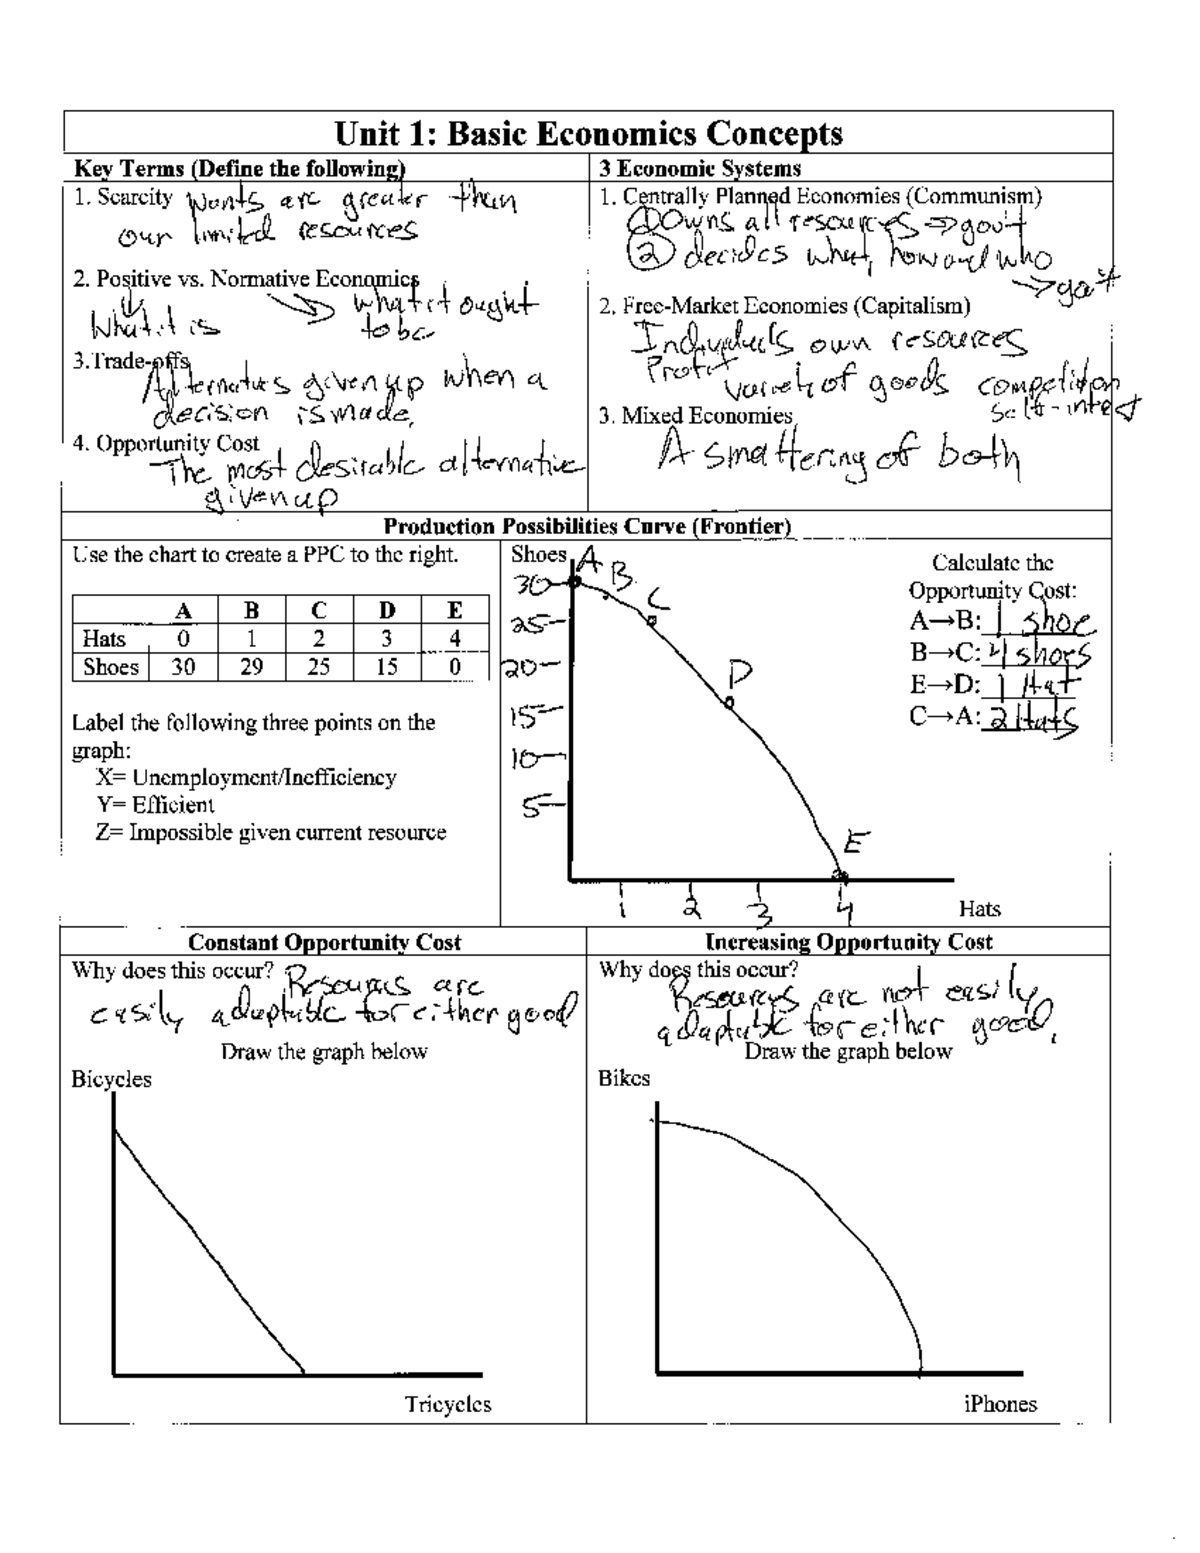 Unit 1: Basic Economics Concepts
Key Terms (Define the following)
1. Scarcity wants are greater then
our limited resources
2. Positive vs. Normative Economics
What it is
what it ought
to be
3.Trade-offs
Alternatives given up when a
decision is made.
4. Opportunity Cost
The most desirable alternative
given up
3 Economic Systems
1. Centrally Planned Economies (Communism)
① Owns all resources ⇒ gov't
② decides what, how and who
→ gov't
2. Free-Market Economies (Capitalism)
Individuals own resources
Profit
variety of goods competition
self-interest
3. Mixed Economies
A smattering of both
Production Possibilities Curve (Frontier)
Use the chart to create a PPC to the right.
A B C D E
Hats 0 1 2 3 4
Shoes 30 29 25 15 0
Label the following three points on the
graph:
X= Unemployment/Inefficiency
Y= Efficient
Z= Impossible given current resource
Shoes
30
25
20
15
10
5
A
B
C
D
E
1 2 3 4
Hats
Calculate the
Opportunity Cost:
A→B: 1 shoe
B→C: 4 shoes
E→D: 1 Hat
C→A: 2 Hats
Constant Opportunity Cost
Why does this occur? Resources are
easily adaptable for either good
Draw the graph below
Bicycles
Tricycles
Increasing Opportunity Cost
Why does this occur?
Resources are not easily
adaptable for either good.
Draw the graph below
Bikes
iPhones